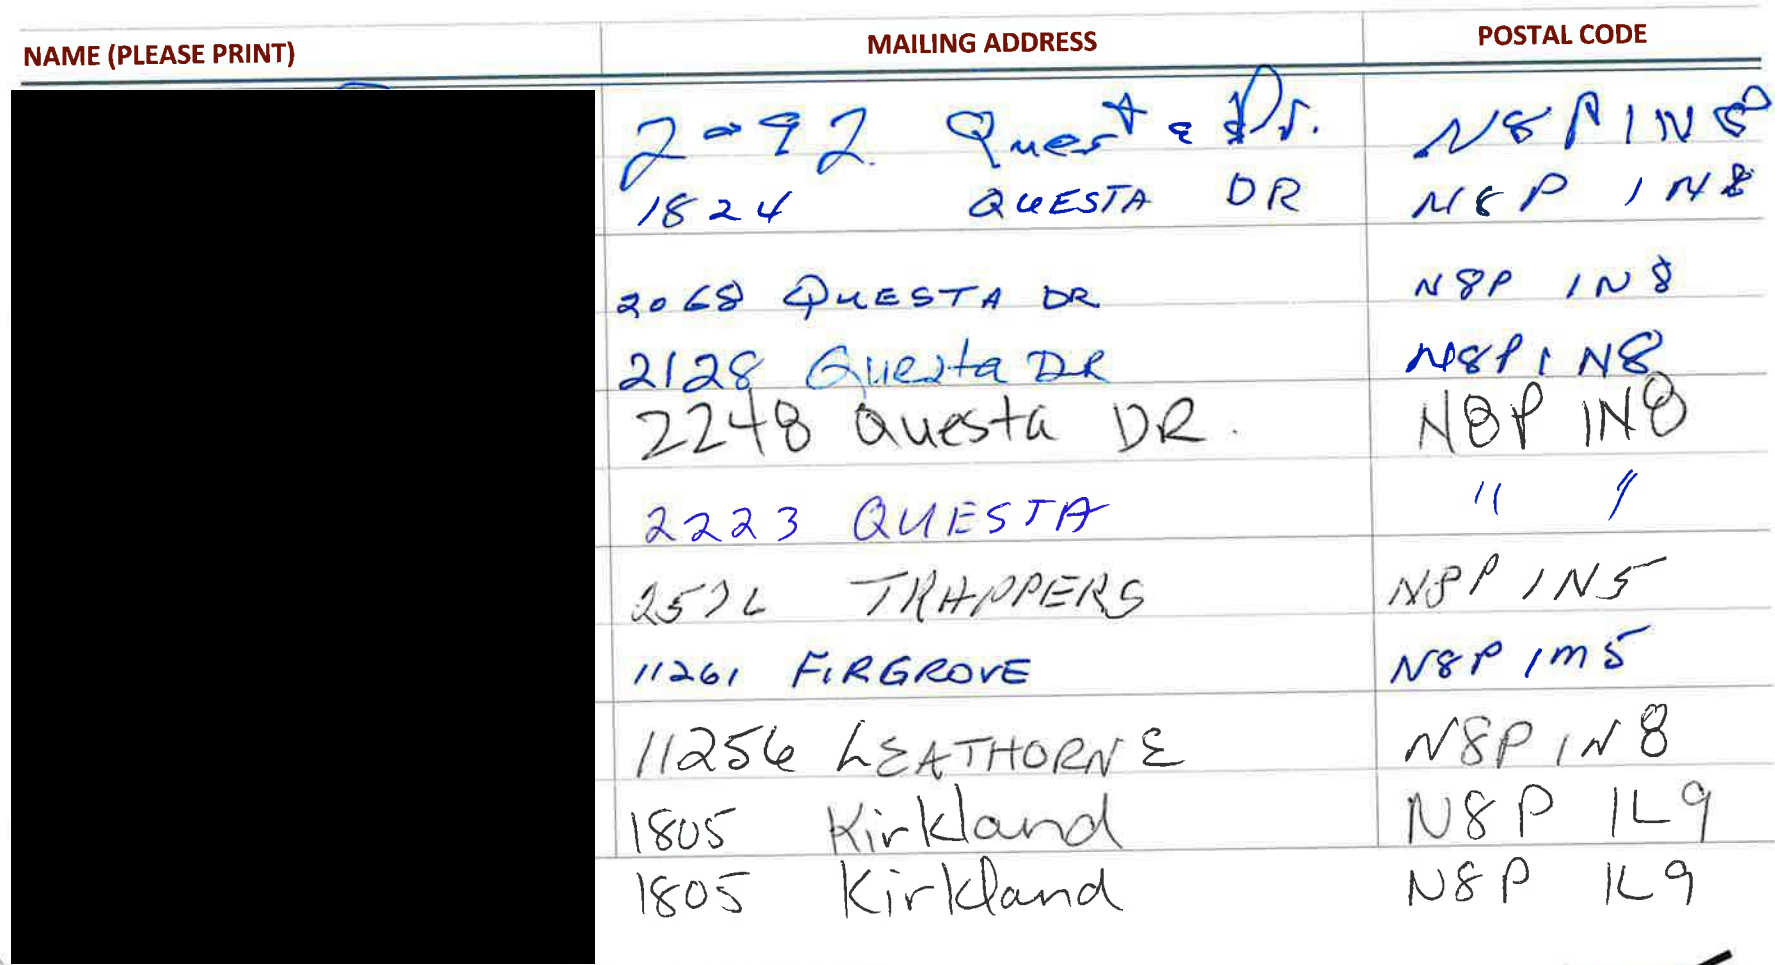 NAME (PLEASE PRINT) MAILING ADDRESS POSTAL CODE
2092 Questa Dr. N8P 1N8
1824 QUESTA DR N8P 1N8
2068 QUESTA DR N8P 1N8
2128 Questa DR N8P 1N8
2248 Questa DR. N8P 1N8
2223 QUESTA " "
TRAPPERS N8P 1N5
11261 FIRGROVE N8P 1M5
11256 LEATHORNE N8P 1N8
1805 Kirkland N8P 1L9
1805 Kirkland N8P 1L9